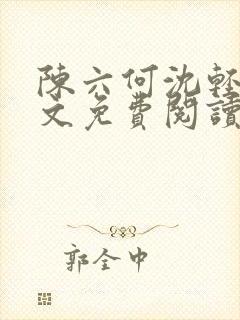 陳六何沈輕
文免費閱讀
郭全中